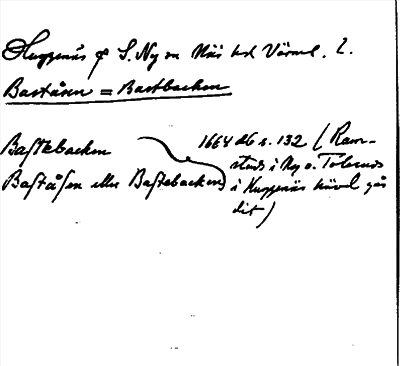 Huggenäs s S. Ny sn Näs hd Värml. l.
Baståsen = Bastbacken
Bastebacken
Baståsen eller Bastebacken
1664 db s. 132 (Ram-
stad i Ny o.
i Huggenäs
dit)